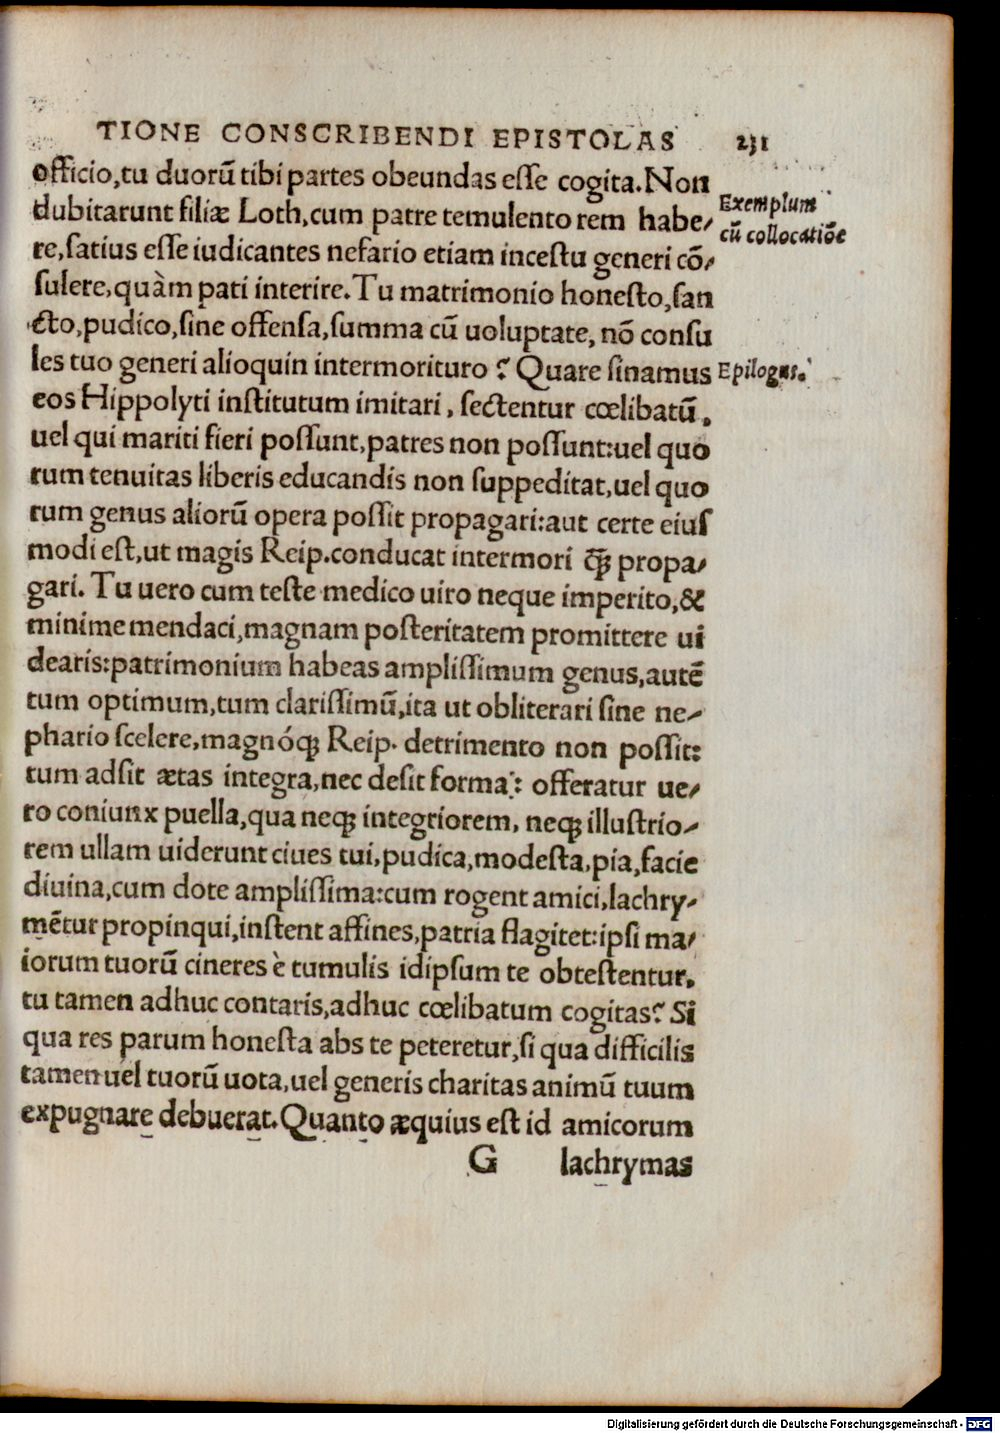 TIONE CONSCRIBENDI EPISTOLAS 231
officio,tu duorū tibi partes obeundas esse cogita.Non
dubitarunt filiæ Loth,cum patre temulento rem habe/
Exemplum
cū collocatiōe
re,satius esse iudicantes nefario etiam incestu generi cō/
sulere,quàm pati interire.Tu matrimonio honesto,san
cto,pudico,sine offensa,summa cū uoluptate, nō consu
les tuo generi alioquin intermorituro? Quare sinamus
Epilogus.
eos Hippolyti institutum imitari, sectentur cœlibatū,
uel qui mariti fieri possunt,patres non possunt:uel quo
rum tenuitas liberis educandis non suppeditat,uel quo
rum genus aliorū opera possit propagari:aut certe eius
modi est,ut magis Reip.conducat intermori q̄ꝫ propa/
gari. Tu uero cum teste medico uiro neque imperito,&
minime mendaci,magnam posteritatem promittere ui
dearis:patrimonium habeas amplissimum genus,autē
tum optimum,tum clarissimū,ita ut obliterari sine ne/
phario scelere,magnóqꝫ Reip. detrimento non possit:
tum adsit ætas integra,nec desit forma: offeratur ue/
ro coniunx puella,qua neqꝫ integriorem, neqꝫ illustrio/
rem ullam uiderunt ciues tui,pudica,modesta,pia,facie
diuina,cum dote amplissima:cum rogent amici,lachry/
mētur propinqui,instent affines,patria flagitet:ipsi ma/
iorum tuorū cineres è tumulis idipsum te obtestentur,
tu tamen adhuc contaris,adhuc cœlibatum cogitas? Si
qua res parum honesta abs te peteretur,si qua difficilis
tamen uel tuorū uota,uel generis charitas animū tuum
expugnare debuerat.Quanto æquius est id amicorum
G lachrymas
Digitalisierung gefördert durch die Deutsche Forschungsgemeinschaft - DFG